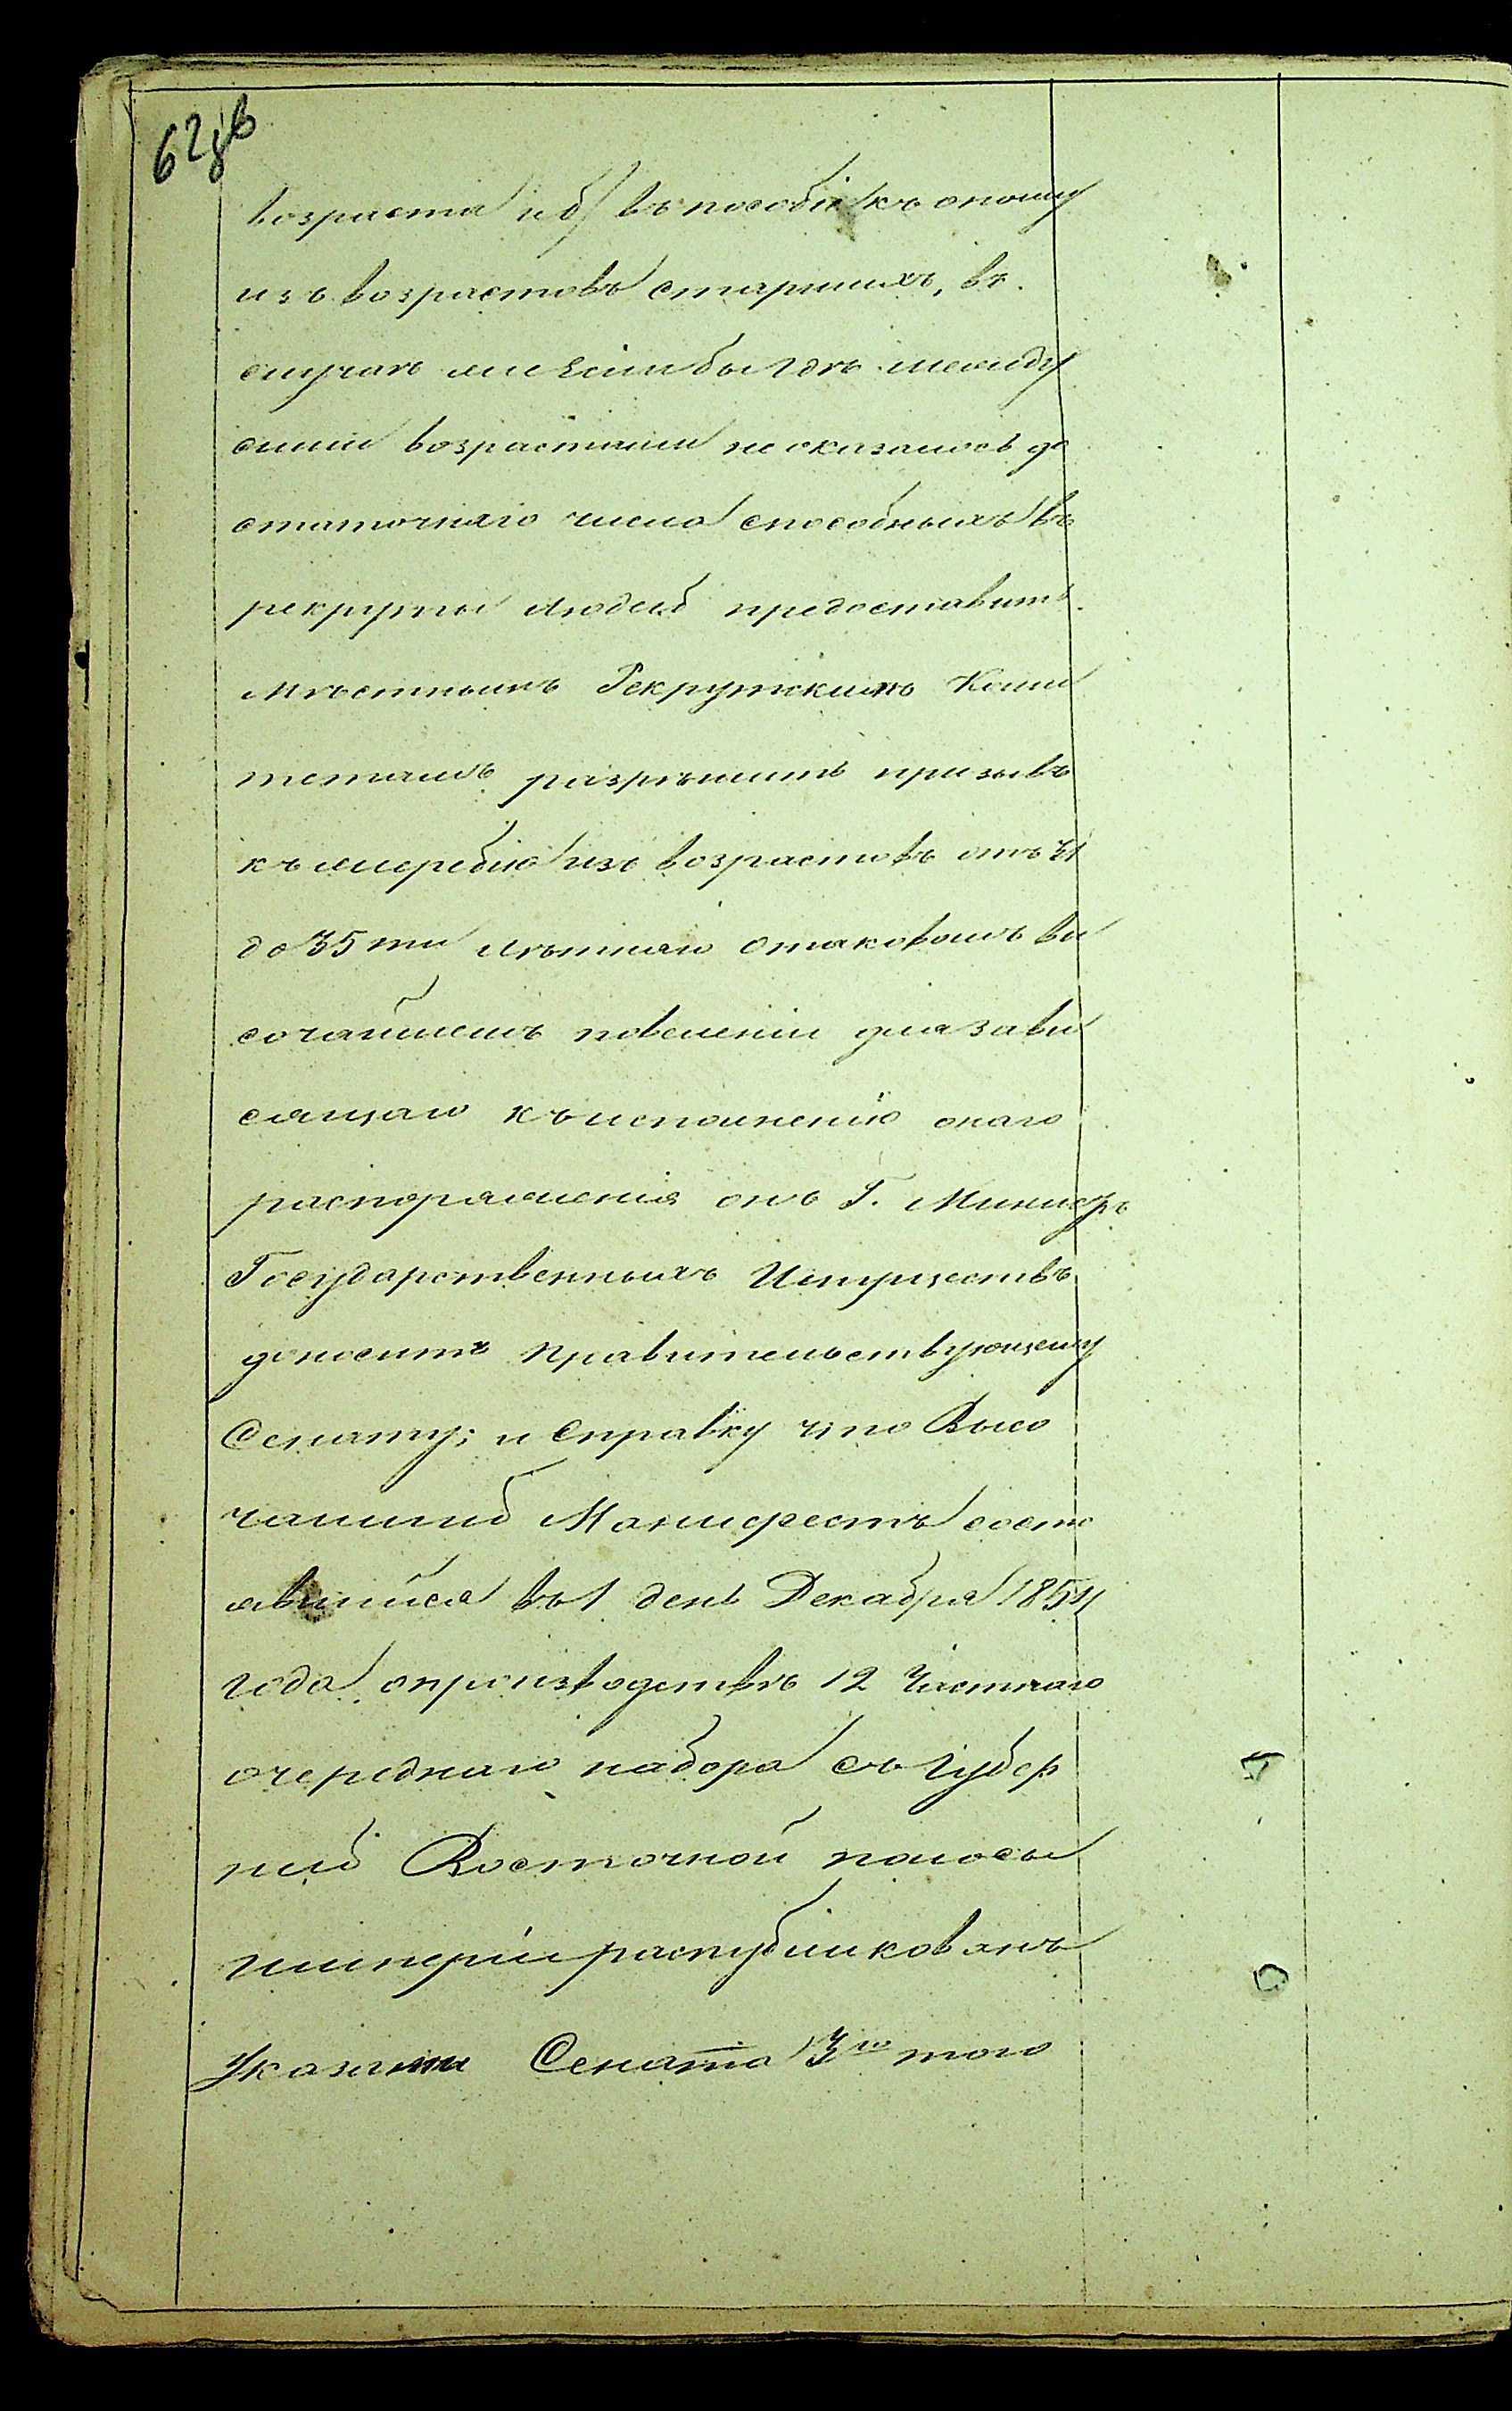 62 об
возраста и б) въ пособіе къ оному
изъ возрастовъ старшихъ, въ
случаѣ же Если бы гдѣ между
сими возрастами не оказалось до
статочнаго числа способныхъ въ
рекруты людей предоставить
Мѣстнымъ Рекрутскимъ Коми
тетамъ разрѣшить призывъ
къ жеребію изъ возрастовъ отъ 31
до 35 ти лѣтняго о таковомъ вы
сочайшемъ повеленіи для зави
сящаго къ исполненію онаго
распоряженія онъ Г. Министръ
Государственныхъ Имуществъ
доноситъ Правительствующему
Сенату; и Справку что Высо
чайшій Манифестъ состо
явшійся въ 1 день Декабря 1854
года о производствѣ 12 Частнаго
очереднаго набора съ Губер
ній Восточной полосы
имперіи распубликованъ
Указами Сената 3го того